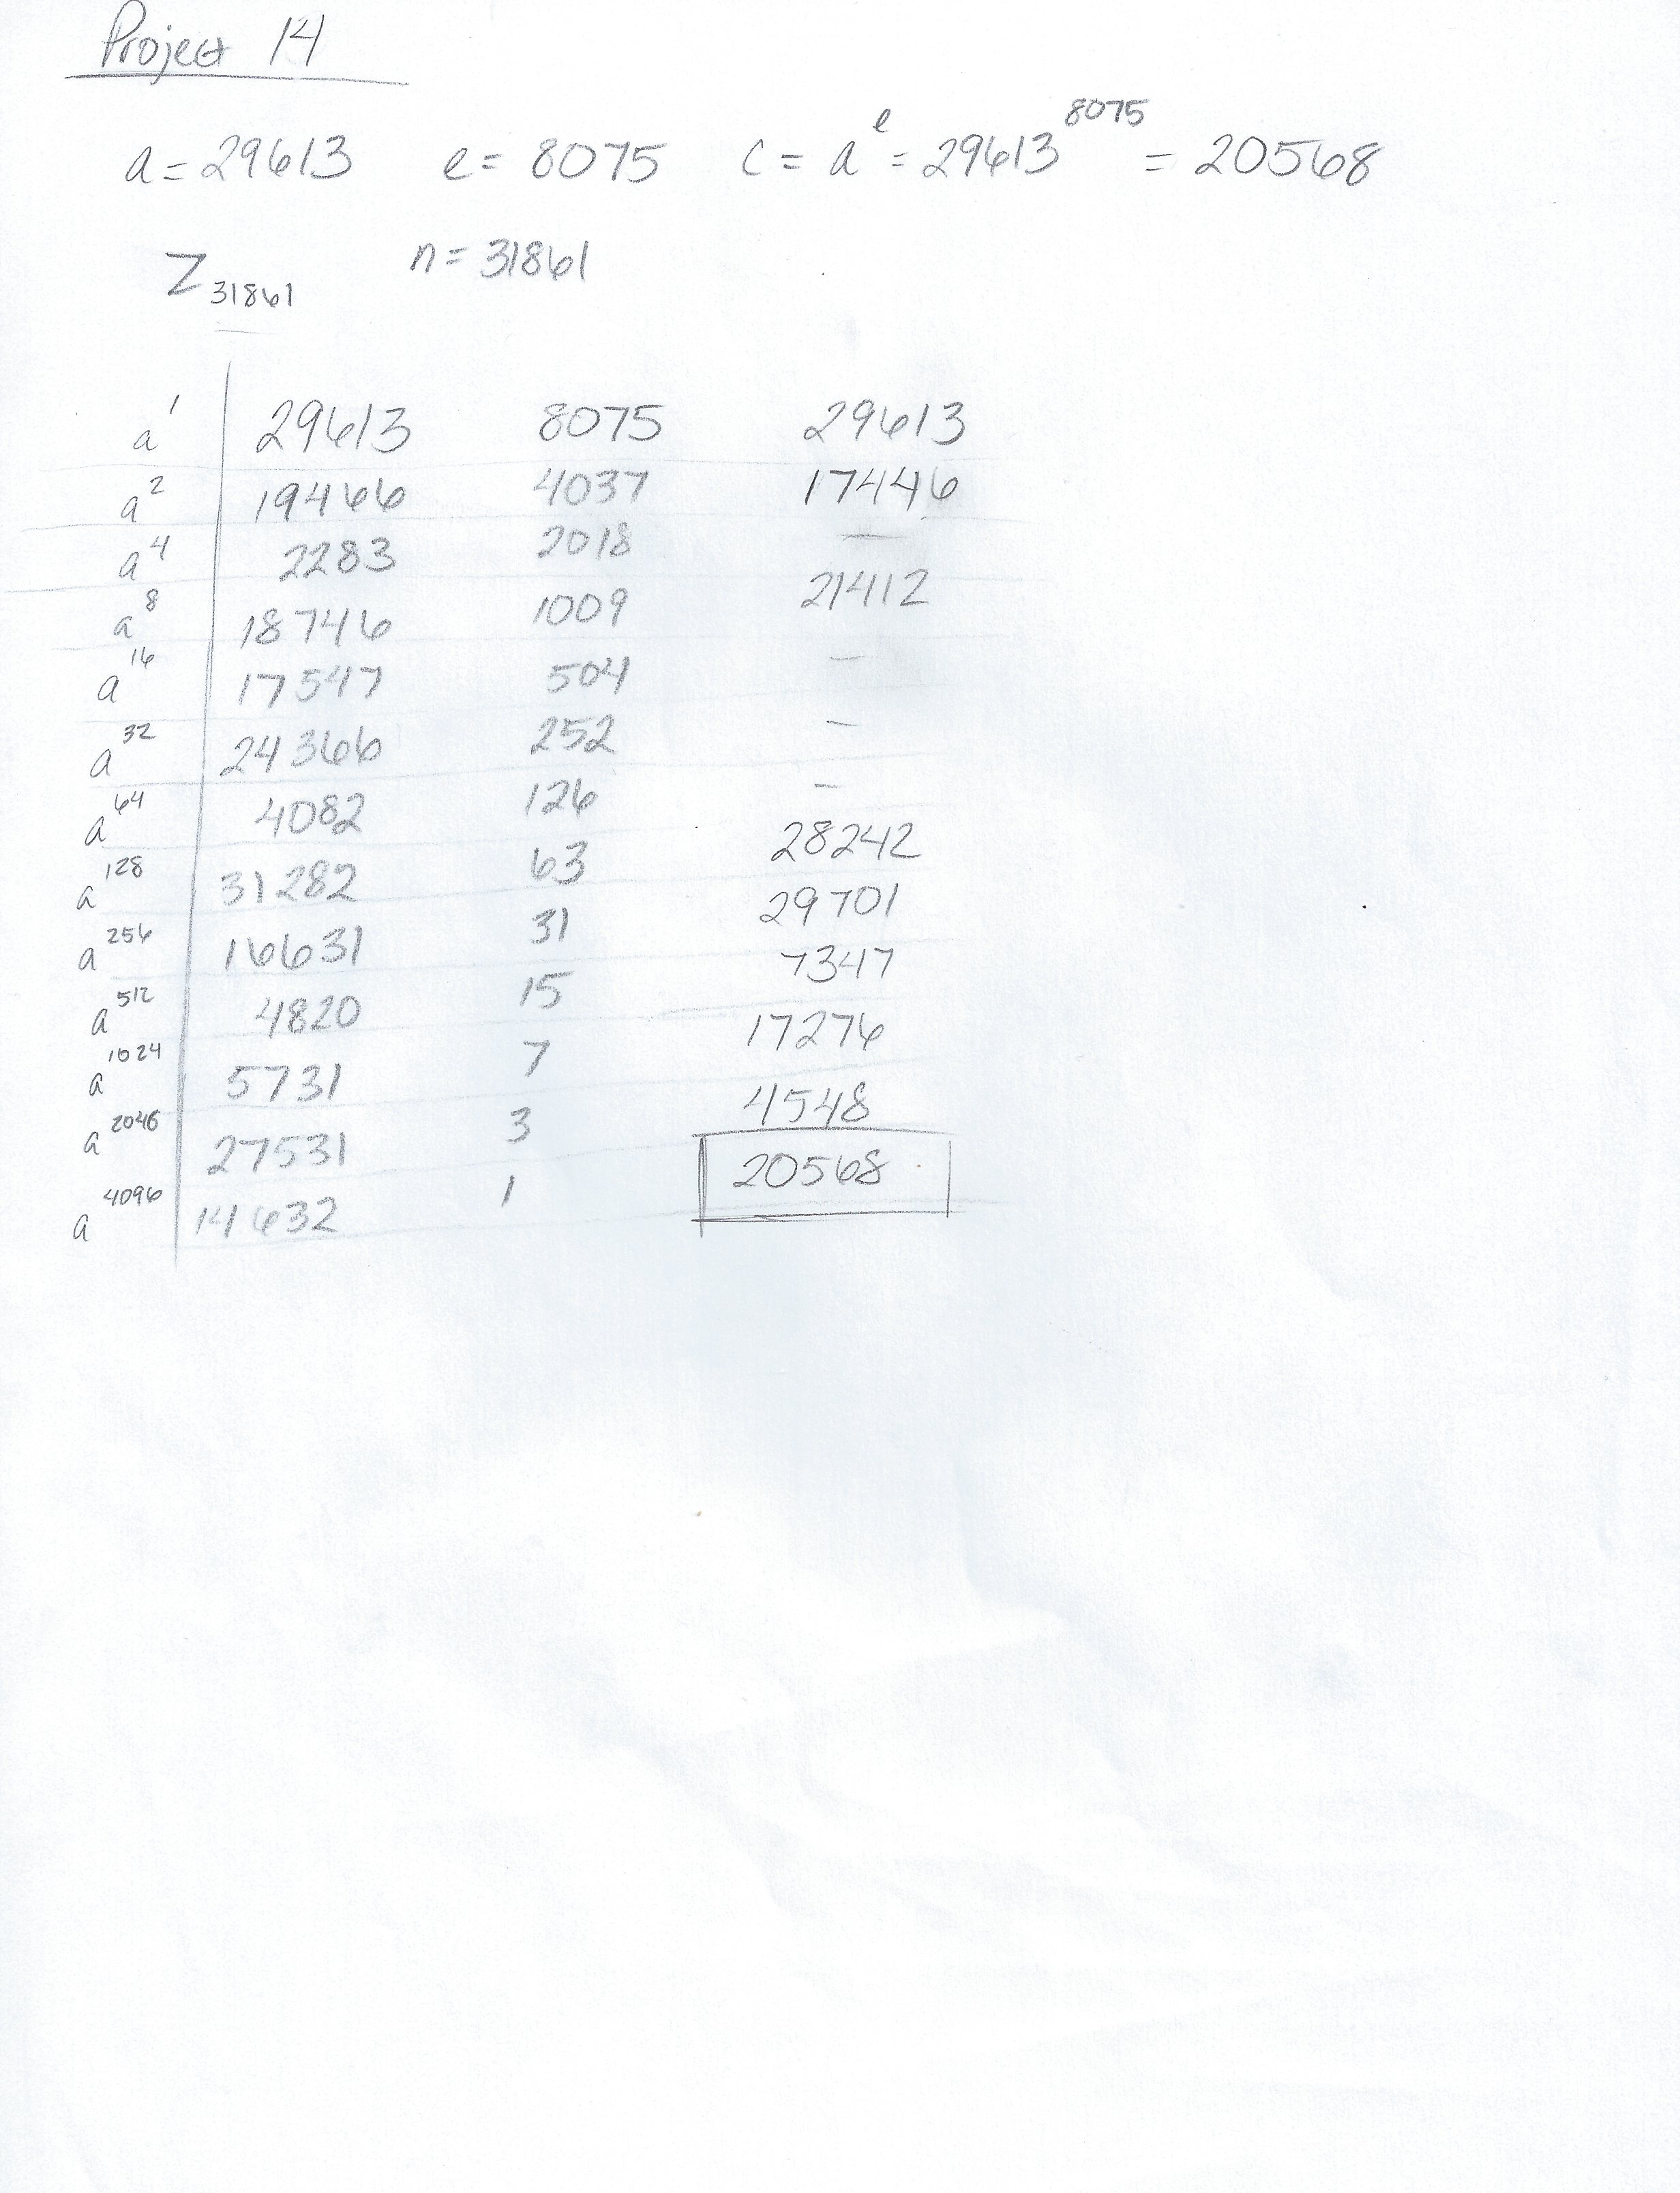 Project 14
a = 29613 e = 8075 c = a^e = 29613^8075 = 20568
Z_31861 n = 31861
a^1 29613 8075 29613
a^2 19466 4037 17446
a^4 2283 2018 —
a^8 18746 1009 21412
a^16 17547 504 —
a^32 24366 252 —
a^64 4082 126 —
a^128 31282 63 28242
a^256 16631 31 29701
a^512 4820 15 7347
a^1024 5731 7 17276
a^2048 27531 3 4548
a^4096 14632 1 20568